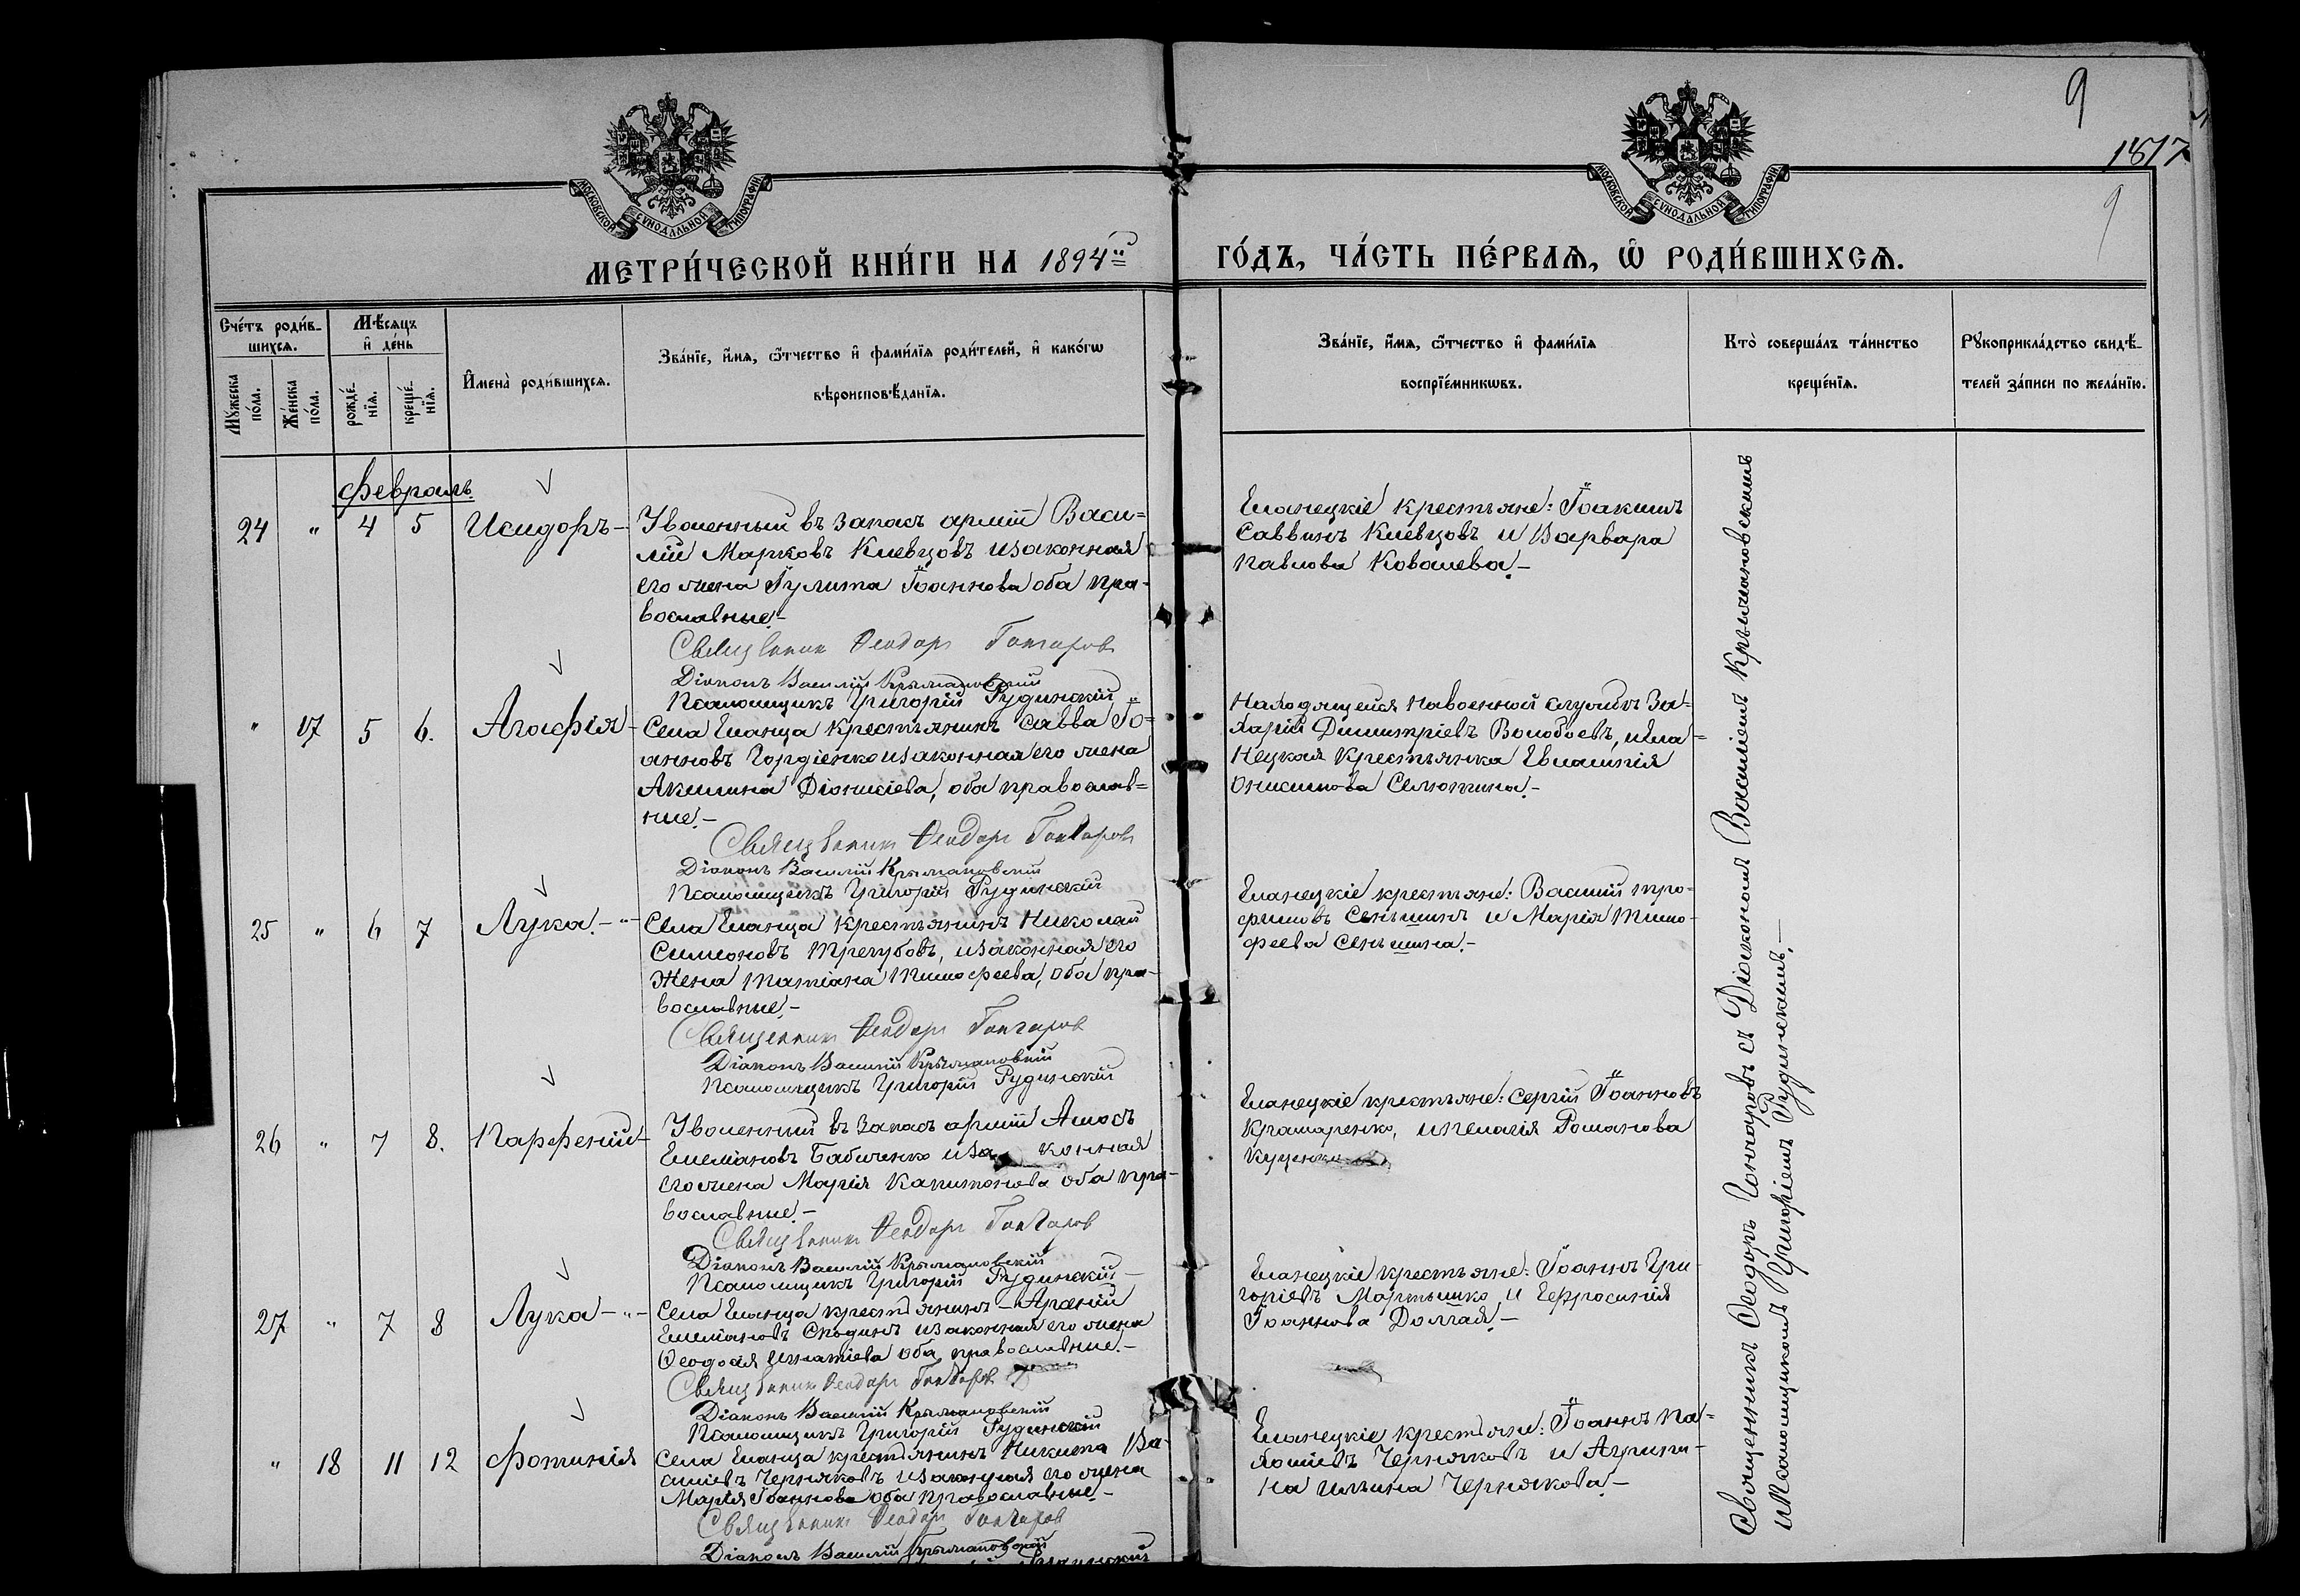 9
1817
9
МОСКОВСКОЙ СѴНОДАЛЬНОЙ ТИПОГРАФІИ
МОСКОВСКОЙ СѴНОДАЛЬНОЙ ТИПОГРАФІИ
МЕТРИ́ЧЕСКОЙ КНИ́ГИ НА 1894й ГО́ДЪ, ЧА́СТЬ ПЕ́РВАѦ, Ѽ РОДИ́ВШИХСѦ.
Сче́тъ роди́в-
шихсѧ.
Мѣ́сѧцъ
и҆ де́нь
Мꙋ́жеска
по́ла.
Же́нска
по́ла.
рожде́-
нїѧ.
креще́-
нїѧ.
И҆мена̀ роди́вшихсѧ.
Зва́нїе, и҆́мѧ, ѻ҆́тчество и҆ фами́лїѧ роди́телей, и҆ како́гѡ
вѣроисповѣ́данїѧ.
Зва́нїе, и҆́мѧ, ѻ҆́тчество и҆ фами́лїѧ
воспрїе́мникѡвъ.
Кто̀ соверша́лъ та́инство
креще́нїѧ.
Рꙋкоприкла́дство свидѣ́-
телей за́писи по жела́нїю.
Февраль
24 " 4 5 Исидоръ-
Уволенный въ запасъ арміи Васи-
лій Марковъ Клевцовъ изаконная
его жена Іулита Іоаннова оба пра-
вославные.-
Священник Феодоръ Гончаров
Діаконъ Василій Крыжановскій
Псаломщикъ Григорій Рудинскій
Еланецкіе крестьяне: Іоакимъ
Саввинъ Клевцовъ и Варвара
Павлова Ковалева.-
" 17 5 6. Агафія-
Села Еланца крестьянинъ Савва Іо=
анновъ Гордіенко изаконная его жена
Акилина Діонисіева, оба православ=
ные.-
Священник Феодоръ Гончаров
Діаконъ Василій Крыжановскій
Псаломщикъ Григорій Рудинскій
Находящейся навоенной службѣ За-
харій Димитріевъ Волобоевъ, иЕла-
нецкая крестьянка Евлампія
Онисимова Селютина.-
25 " 6 7 Лука.-"-
Села Еланца крестьянинъ Николай
Симеоновъ Трегубовъ, изаконная его
жена Татіана Тимофеева, оба пра-
вославные.-
Священник Феодоръ Гончаров
Діаконъ Василій Крыжановскій
Псаломщикъ Григорій Рудинскій
Еланецкіе крестьяне: Василій Тро-
фимовъ Сеньшинъ и Марія Тимо-
феева Сеньшина.-
26 " 7 8. Парфеній-
Уволенный въ запасъ арміи Амосъ
Емеліановъ Бабиченко иза конная
его жена Марія Капитонова оба пра-
вославные.-
Священник Феодоръ Гончаров
Діаконъ Василій Крыжановскій
Псаломщикъ Григорій Рудинскій
Еланецкіе крестьяне: Сергій Іоанновъ
Крамаренко, иПелагія Романова
Куценко
27 " 7 8 Лука-"-
Села Еланца крестьянинъ-Арсеній
Емеліановъ Слодинъ изаконная его жена
Феодосія Игнатіева оба православные.-
Священник Феодоръ Гончаров
Діаконъ Василій Крыжановскій
Псаломщикъ Григорій Рудинскій
Еланецкіе крестьяне: Іоаннъ Гри-
горіевъ Мартышко и Евфросинія
Іоаннова Долгая.-
" 18 11 12 Фотинія
Села Еланца крестьянинъ Никита Ва-
силіевъ Черняковъ изаконная его жена
Марія Іоаннова оба православные.-
Священник Феодоръ Гончаров
Діаконъ Василій Крыжановскій
Еланецкіе крестьяне: Іоаннъ Па=
хоміевъ Черняковъ и Агрипи-
на Ильина Чернякова.-
Священникъ Феодоръ Гончаровъ съ Діакономъ Василіемъ Крыжановскимъ
иПсаломщикомъ Григоріемъ Рудинскимъ.-